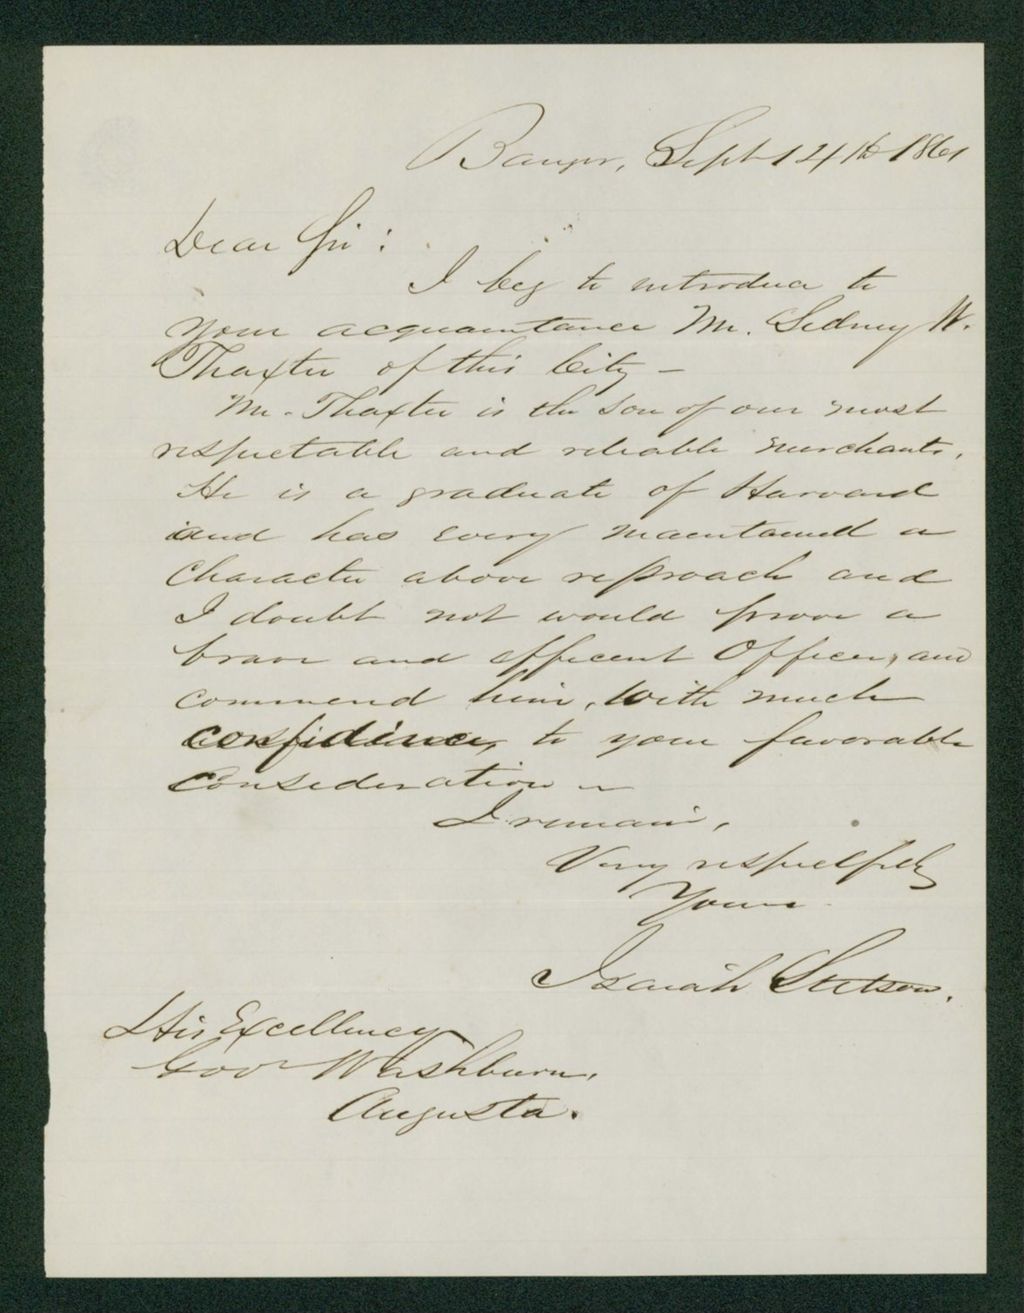 Bangor, Sept 14th 1861
Dear Sir:
I beg to introduce to
your acquaintance Mr. Sidney W.
Thaxter of this City —
Mr. Thaxter is the son of our most
respectable and reliable merchants.
He is a graduate of Harvard
and has every maintained a
Character above reproach and
I doubt not would prove a
brave and efficent Officer, and
commend him, with much
confidence, to your favorable
Consideration —
I remain,
Very respectfully
Yours
Isaiah Stetson.
His Excellency
Gov Washburn,
Augusta.